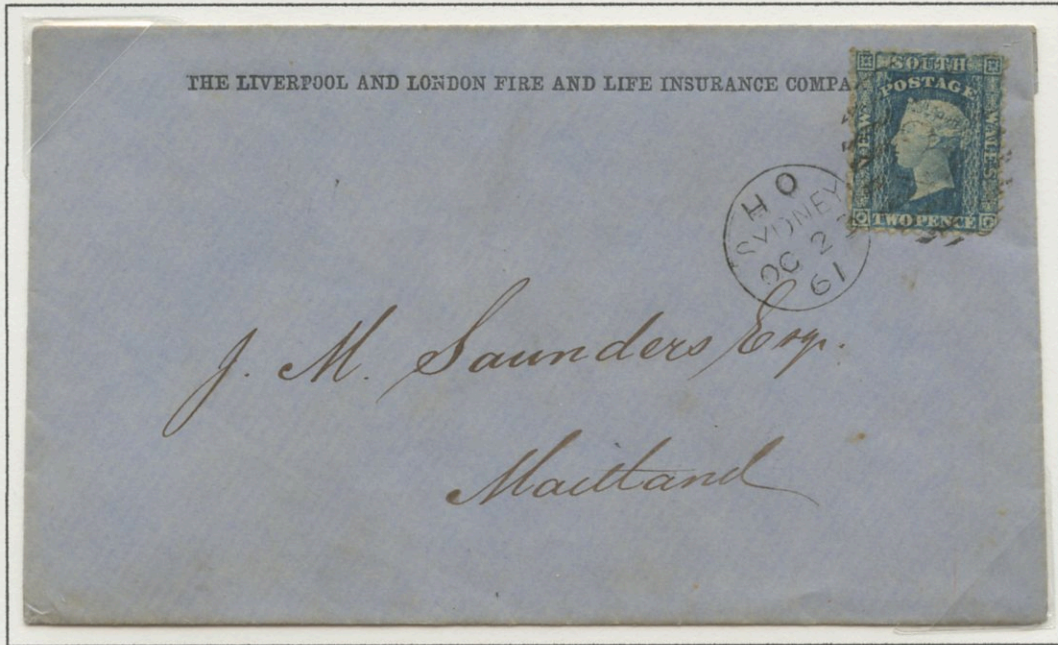 THE LIVERPOOL AND LONDON FIRE AND LIFE INSURANCE COMPA
SOUTH
POSTAGE
NEW
WALES
TWO PENCE
H O
SYDNEY
OC 2
61
J. M. Saunders Esqr.
Maitland